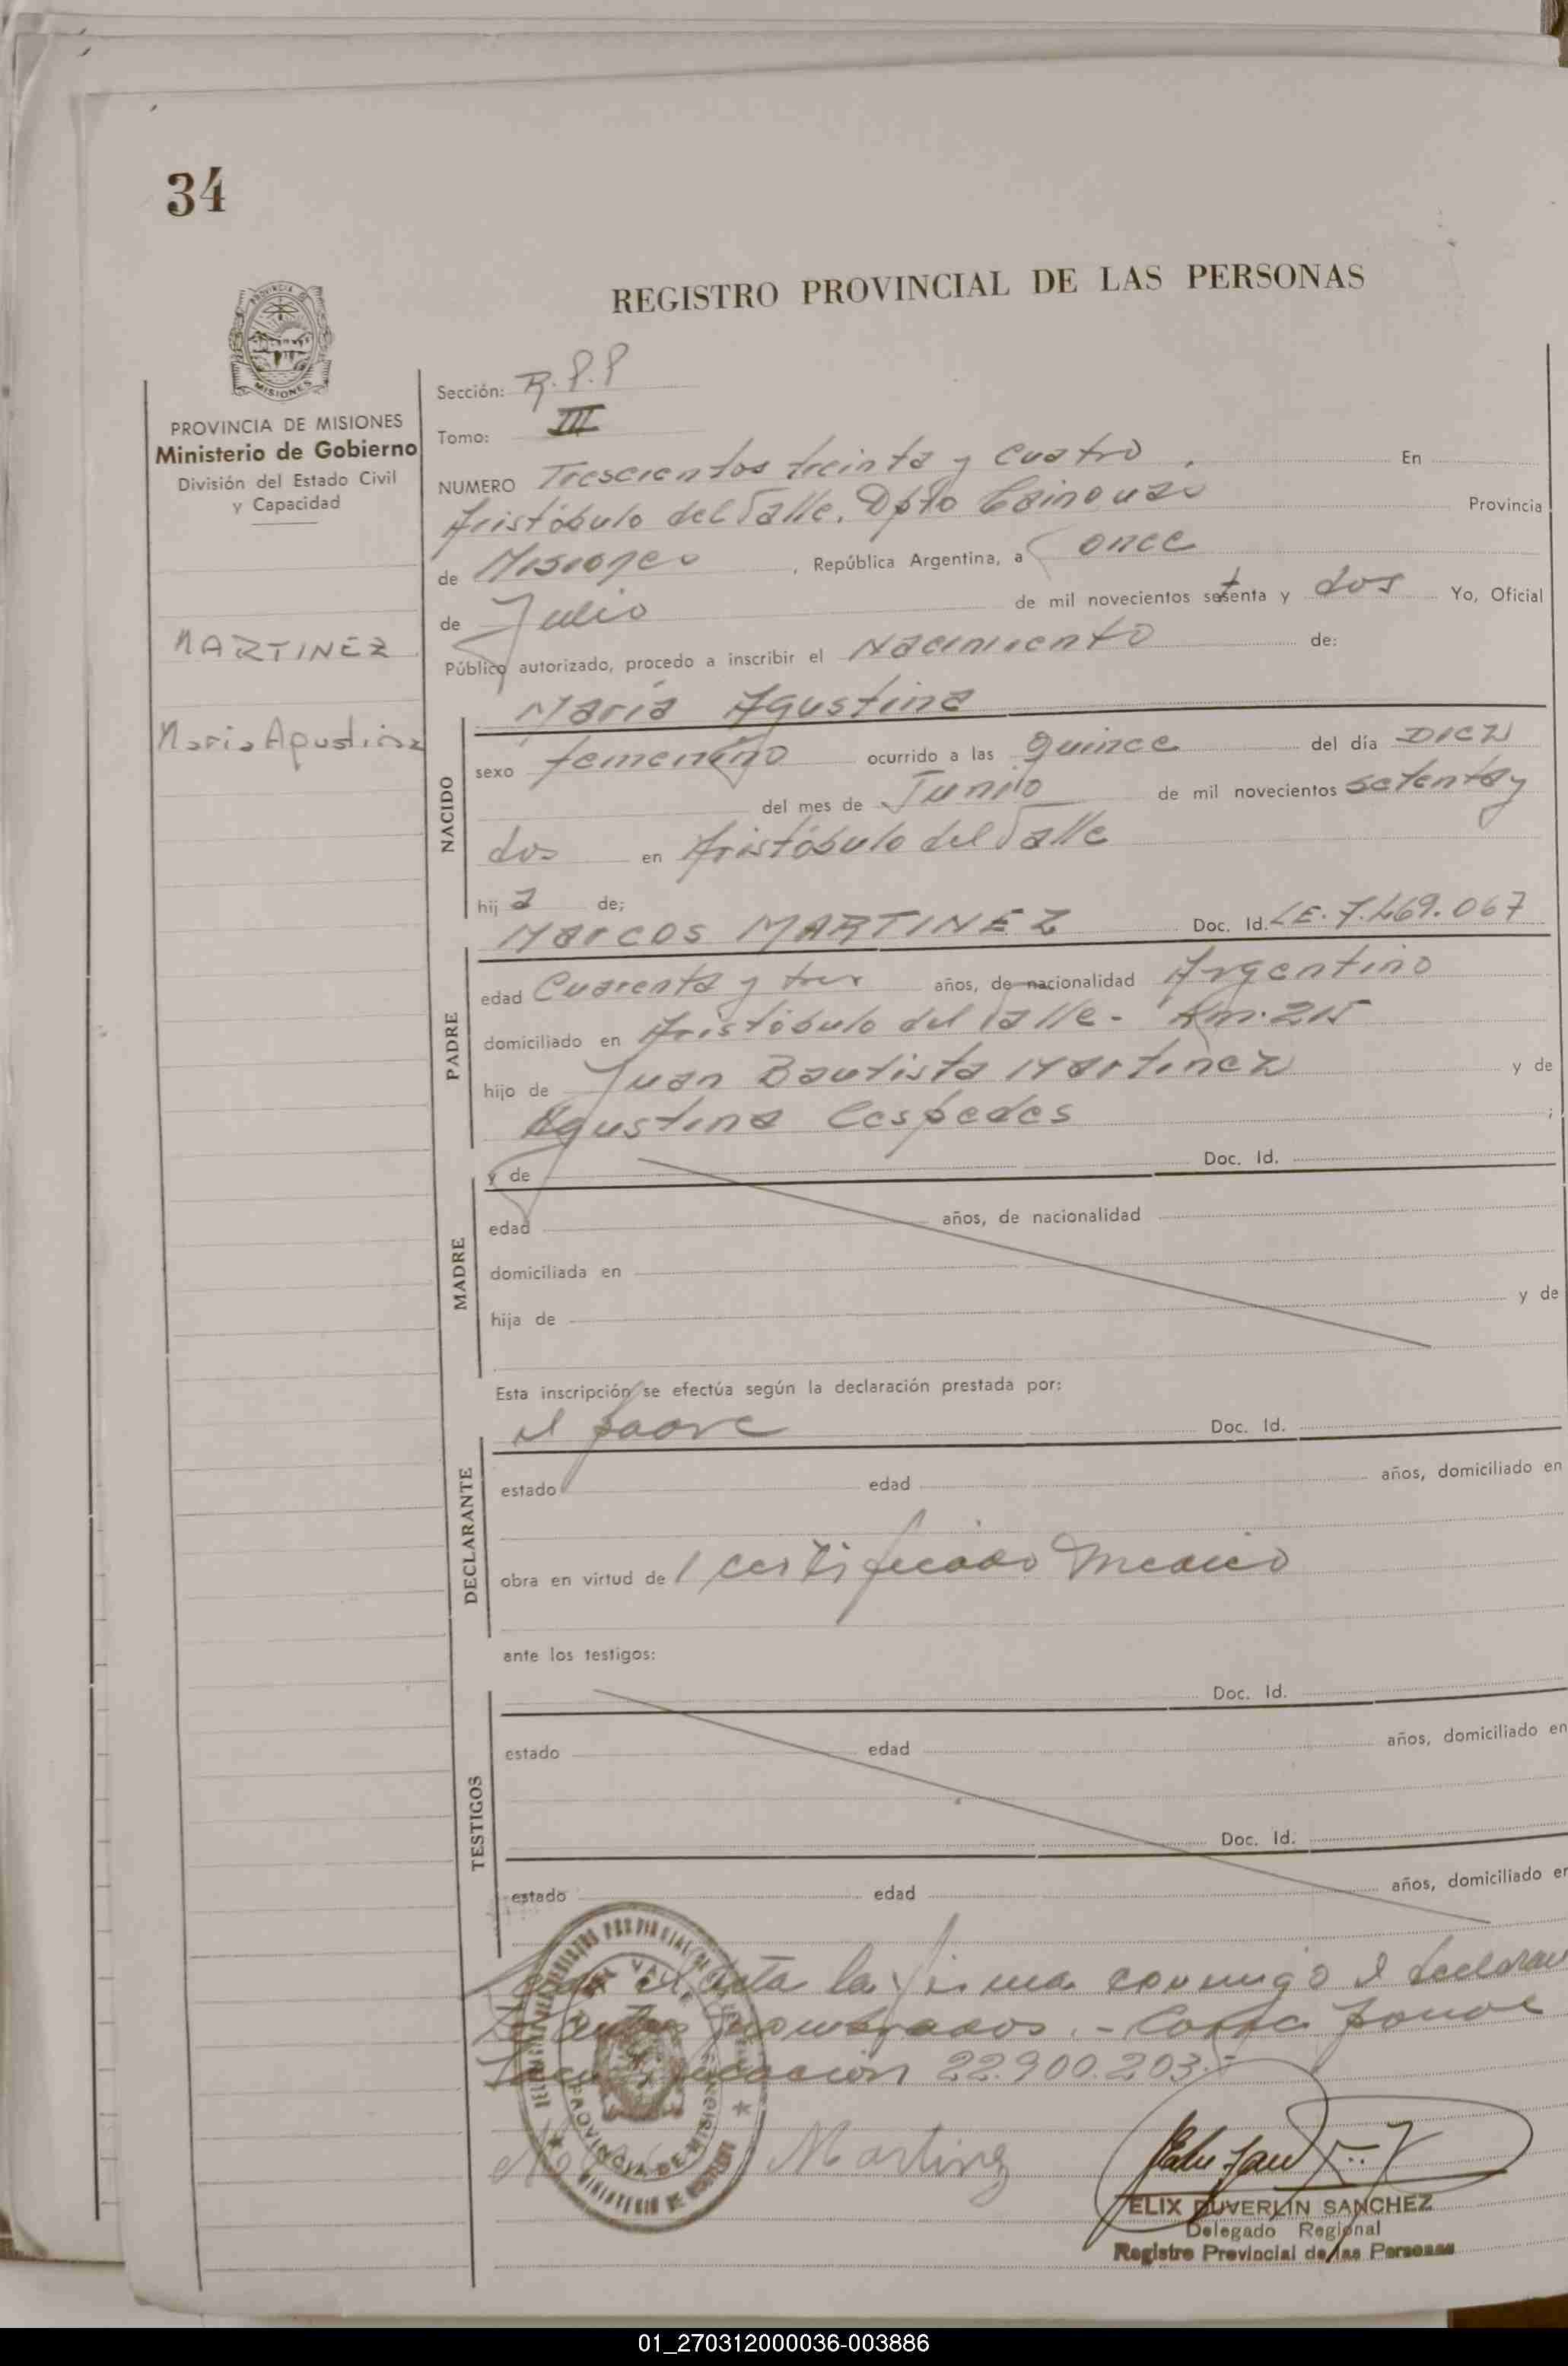 34
REGISTRO PROVINCIAL DE LAS PERSONAS
MISIONES
PROVINCIA DE MISIONES
Ministerio de Gobierno
División del Estado Civil
y Capacidad
MARTINEZ
Maria Agustina
Sección: R.P.P
Tomo: III
NUMERO Trescientos treinta y cuatro . En
Aristóbulo del Valle. Dpto Cainguas Provincia
de Misiones , República Argentina, a once
de Julio de mil novecientos setenta y dos Yo, Oficial
Público autorizado, procedo a inscribir el Nacimiento de:
María Agustina
NACIDO
sexo femenino ocurrido a las quince del día DIEZ
del mes de Junio de mil novecientos setenta y
dos en Aristóbulo del Valle
hij a de;
Marcos MARTINEZ Doc. Id. LE. 7.469.067
PADRE
edad Cuarenta y tres años, de nacionalidad Argentino
domiciliado en Aristóbulo del Valle - Km. 215
hijo de Juan Bautista Martinez y de
Agustina Cespedes ;
y de Doc. Id.
MADRE
edad años, de nacionalidad
domiciliada en
hija de y de
Esta inscripción se efectúa según la declaración prestada por:
el padre Doc. Id.
DECLARANTE
estado edad años, domiciliado en
obra en virtud de / certificado medico
ante los testigos:
Doc. Id.
TESTIGOS
estado edad años, domiciliado en
Doc. Id.
estado edad años, domiciliado en
acta la firma conmigo el declaran
nombrados. -
22.900.203.-
PROVINCIA DE MISIONES
Martinez
ELIX DUVERLIN SANCHEZ
Delegado Regional
Registro Provincial de las Personas
01_270312000036-003886